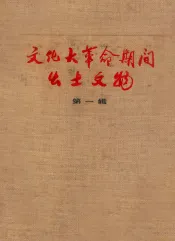 文化大革命期间
出土文物
第一辑